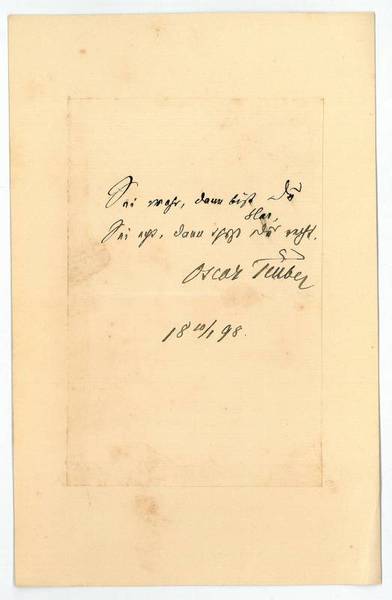 Sei wahr, dann bist Du
klar,
Sei echt, dann thust Du recht.
Oscar Teuber
18 20/1 98.